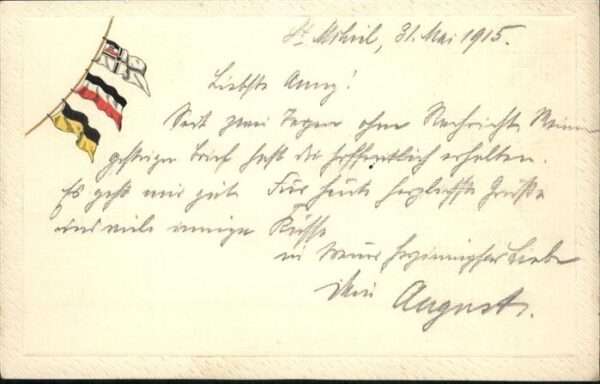 St. Mihiel, 31. Mai 1915.
Liebste Anny!
Seit zwei Tagen ohne Nachricht. Meinen
gestrigen Brief hast du hoffentlich erhalten.
Es geht mir gut. Für heute herzlichste Grüße
und viele innige Küsse
in treuer herzinniger Liebe
dein August.